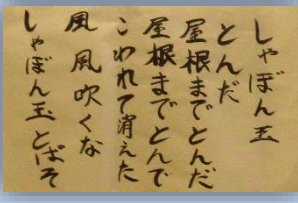 しゃぼん玉
とんだ
屋根までとんだ
屋根までとんで
こわれて消えた
風風吹くな
しゃぼん玉とばそ